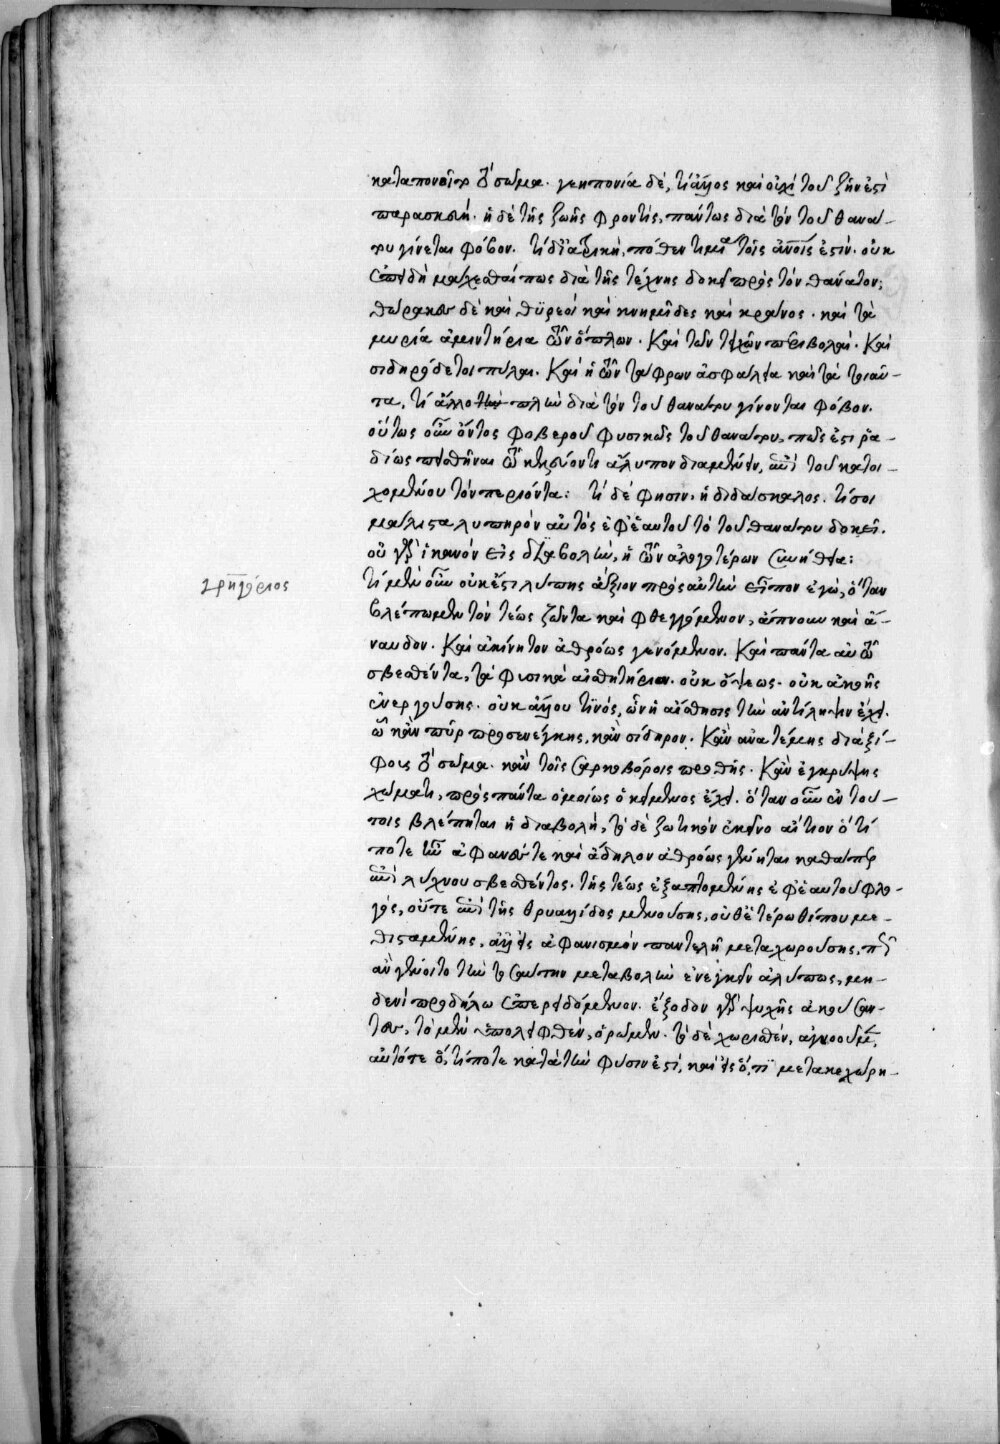 καταπονεῖν τὸ σῶμα. γεηπονία δέ, τί ἄλλος καὶ οὐχὶ τοῦ ζῆν ἐστὶ
παρασκευή. ἡ δὲ τῆς ζωῆς φροντὶς, πάντως διὰ τὸν τοῦ θανά-
του γίνεται φόβον. τί δὲ ἰατρικὴ, πόθεν τιμία τοῖς ἀνοις ἐστίν. οὐκ
ἐπειδὴ μάχεσθαί πως διὰ τῆς τέχνης δοκεῖ πρὸς τὸν θάνατον;
θώρακες δὲ καὶ θυρεοὶ καὶ κνημῖδες καὶ κράνος. καὶ τὰ
μυρία ἀμυντήρια τῶν ὅπλων. Καὶ τῶν τειχῶν περιβολαί. Καὶ
σιδηρόδετοι πύλαι. Καὶ ἡ τῶν τάφρων ἀσφάλεια καὶ τὰ τοιαῦ-
τα, τί ἄλλο πλὴν διὰ τὸν τοῦ θανάτου γίνονται φόβον.
οὕτως οὖν ὄντος φοβεροῦ φυσικῶς τοῦ θανάτου, πῶς ἐστι ῥᾳ-
δίως πεισθῆναι τῷ κελεύοντι ἄλυπον διαμένειν, ἐπὶ τοῦ κατοι-
χομένου τὸν περιόντα: τί δέ φησιν. ἡ διδάσκαλος. τί σοι
μάλιστα λυπηρὸν αὐτὸς ἐφ' ἑαυτοῦ τὸ τοῦ θανάτου δοκεῖ.
οὐ γὰρ ἱκανὸν εἰς διαβολὴν, ἡ τῶν ἀλογωτέρων συνήθεια:
γρηγόριος
τί μὲν οὖν οὐκ ἔστι λύπης ἄξιον πρὸς αὐτὴν εἶπον ἐγὼ, ὅταν
βλέπωμεν τὸν τέως ζῶντα καὶ φθεγγόμενον, ἄπνουν καὶ ἄ-
ναυδον. Καὶ ἀκίνητον ἀθρόως γενόμενον. Καὶ πάντα αὐτῷ
σβεσθέντα, τὰ φυσικὰ αἰσθητήρια. οὐκ ὄψεως. οὐκ ἀκοῆς
ἐνεργούσης. οὐκ ἄλλου τινὸς, ὧν ἡ αἴσθησις τὴν ἀντίληψιν ἔχει.
ᾧ κἂν πῦρ προσενέγκῃς, κἂν σίδηρον. Κἂν ἀνατέμῃς διὰ ξί-
φους τὸ σῶμα. κἂν τοῖς σαρκοβόροις προθῇς. Κἂν ἐγκρύψῃς
χώματι, πρὸς πάντα ὁμοίως ὁ κείμενος ἔχει. ὅταν οὖν ἐν τού-
τοις βλέπηται ἡ διαβολὴ, τὸ δὲ ζωτικὸν ἐκεῖνο αἴτιον ὅ τί
ποτε ἦν ἀφανές τε καὶ ἄδηλον ἀθρόως γένηται καθάπερ
ἐπὶ λύχνου σβεσθέντος. τῆς τέως ἐξαπτομένης ἐφ' ἑαυτοῦ φλο-
γὸς, οὔτε ἐπὶ τῆς θρυαλλίδος μενούσης, οὐθ' ἑτέρωθί που με-
θισταμένης, ἀλλ' εἰς ἀφανισμὸν παντελῆ μεταχωρούσης, πῶς
ἂν γένοιτο τὴν τοσαύτην μεταβολὴν ἐνεγκεῖν ἀλύπως, μη-
δενὶ προδήλῳ ἐπερειδόμενον. ἔξοδον γὰρ ψυχῆς ἀκούσαν-
τες, τὸ μὲν ὑπολειφθὲν, ὁρῶμεν. τὸ δὲ χωρισθὲν, ἀγνοοῦμεν,
αὐτό τε ὅ, τί ποτε κατὰ τὴν φύσιν ἐστί, καὶ εἰς ὅ, τι μετακεχώρη-